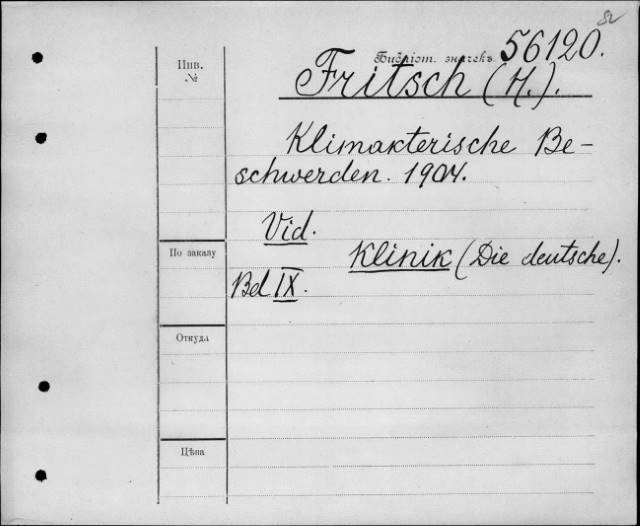 Инв.
№
Библіот. значекъ 56120.
Fritsch (H.).
Klimakterische Be-
schwerden. 1904.
Vid.
По заказу
Klinik (Die deutsche).
Bd IX.
Откуда
Цѣна